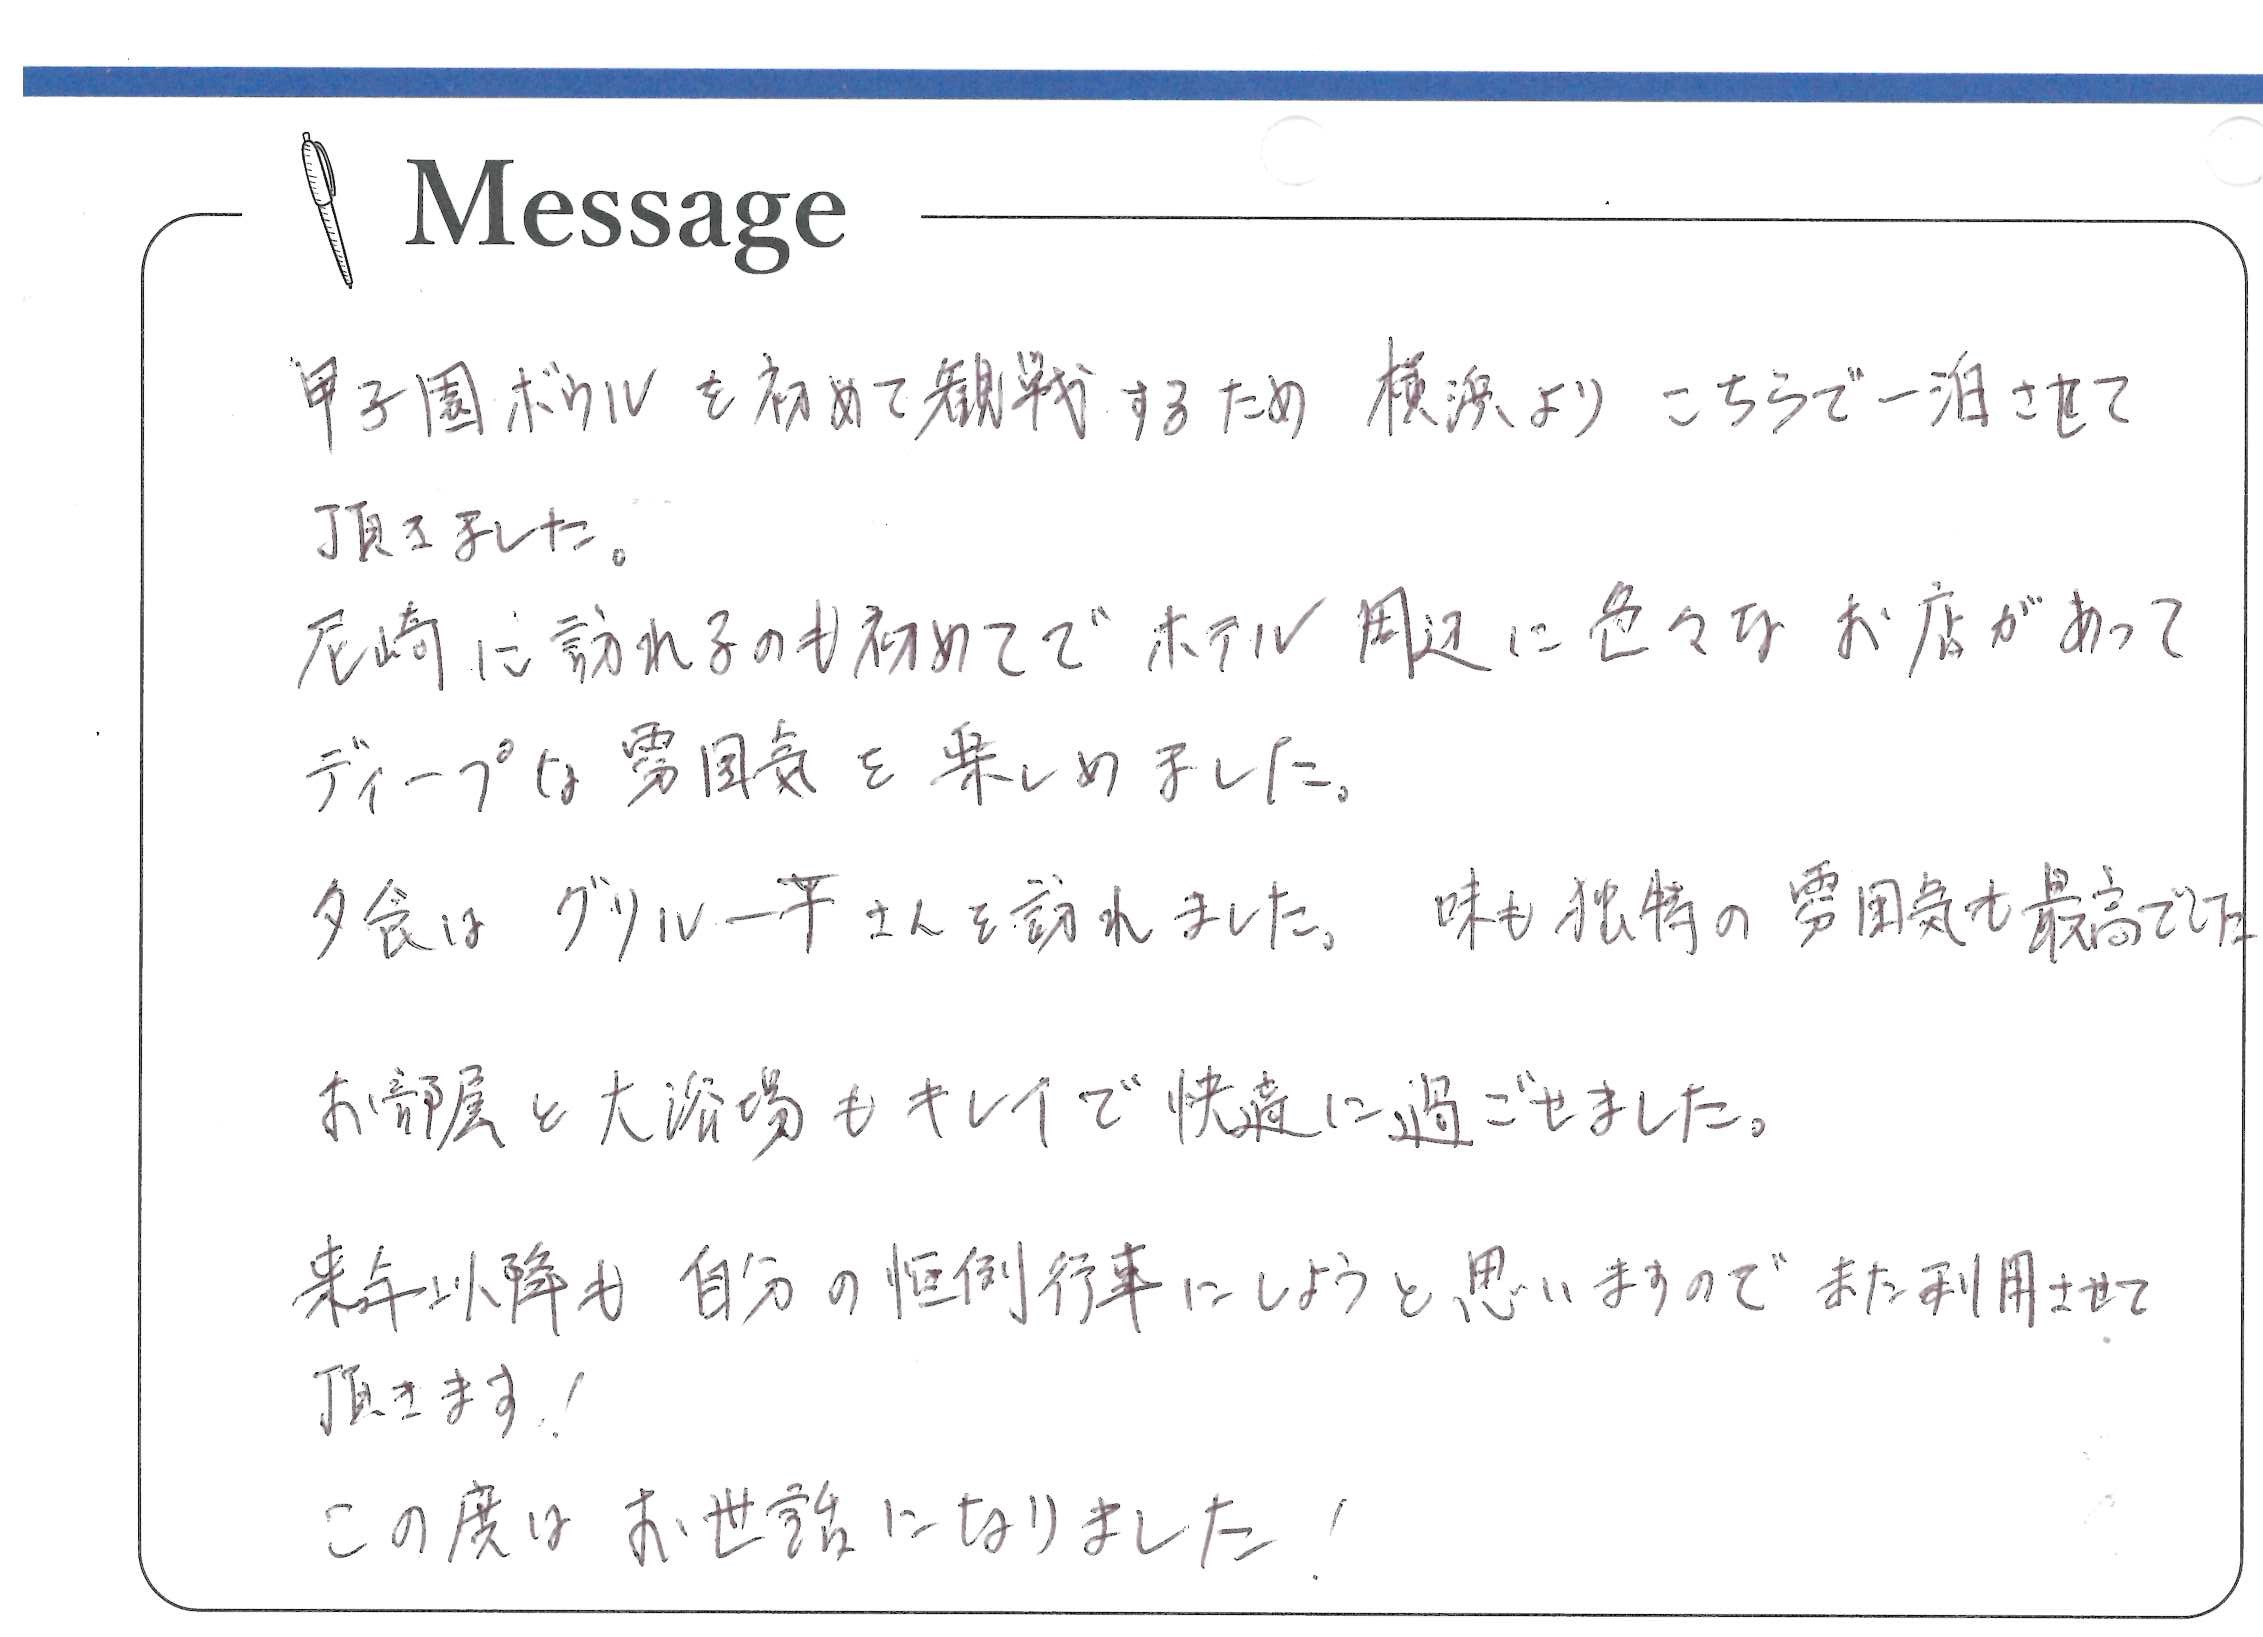 Message
甲子園ボウルを初めて観戦するため 横浜より こちらで一泊させて
頂きました。
尼崎に訪れるのも初めてで ホテル周辺に色々な お店があって
ディープな雰囲気を楽しめました。
夕食は グリル一平さんを訪れました。 味も独特の雰囲気も最高でした
お部屋と大浴場もキレイで快適に過ごせました。
来年以降も 自分の恒例行事にしようと思いますので また利用させて
頂きます!
この度は お世話になりました!